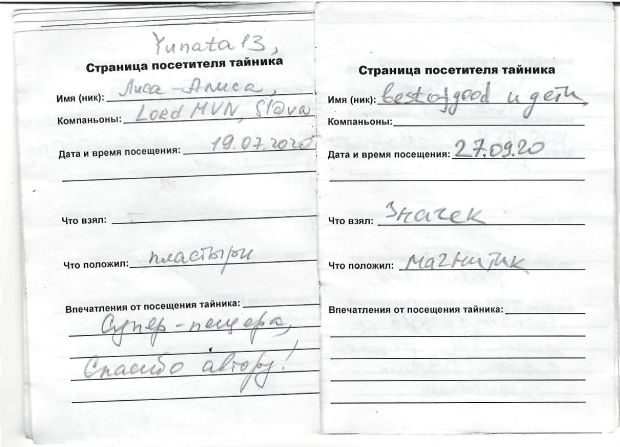 Yunata13,
Страница посетителя тайника
Имя (ник): Лиса-Алиса,
Компаньоны: Loed MVN, Slava
Дата и время посещения: 19.07.2020
Что взял:
Что положил: пластыри
Впечатления от посещения тайника:
Супер-пещера,
Спасибо автору!
Страница посетителя тайника
Имя (ник): bestofgood и дети
Компаньоны:
Дата и время посещения: 27.09.20
Что взял: Значек
Что положил: магнитик
Впечатления от посещения тайника: